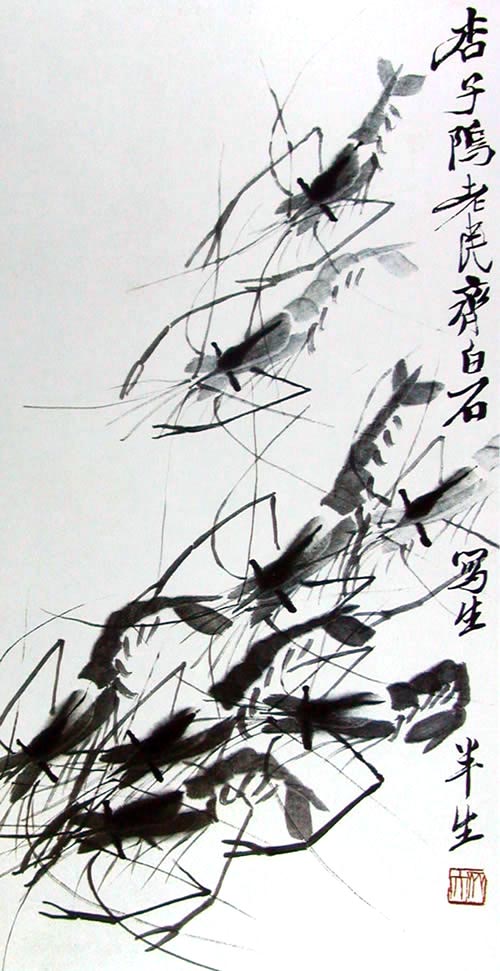 杏子隝老民齊白石寫生半生